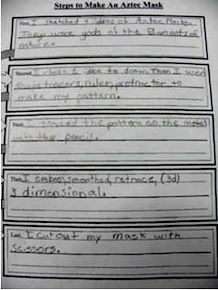 Steps to Make An Aztec Mask
First, I sketched 4 ideas of Aztec Masks.
They were gods of the Elements of
nature.
Second I chose 1 idea to draw. Then I used
tracers, ruler, protractor to
make my pattern.
Next, I traced the pattern on the metal
with the pencil.
Then I emboss, smoothed, retrace, (3d)
3 dimensional.
Last, I cut out my mask with
scissors.